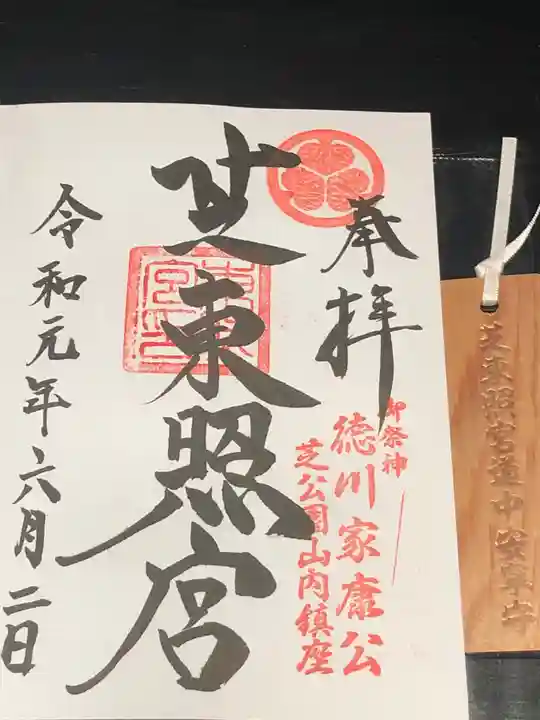 芝東照宮道中安寧守
奉拝
御祭神
徳川家康公
芝公園山内鎮座
芝東照宮
令和元年六月二日